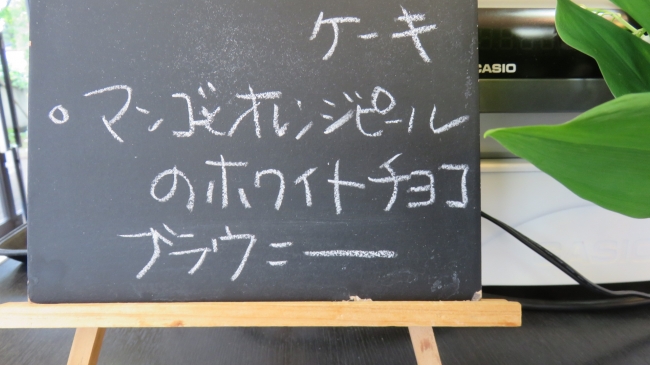 ケーキ
○ マンゴとオレンジピール
のホワイトチョコ
ブラウニー
CASIO